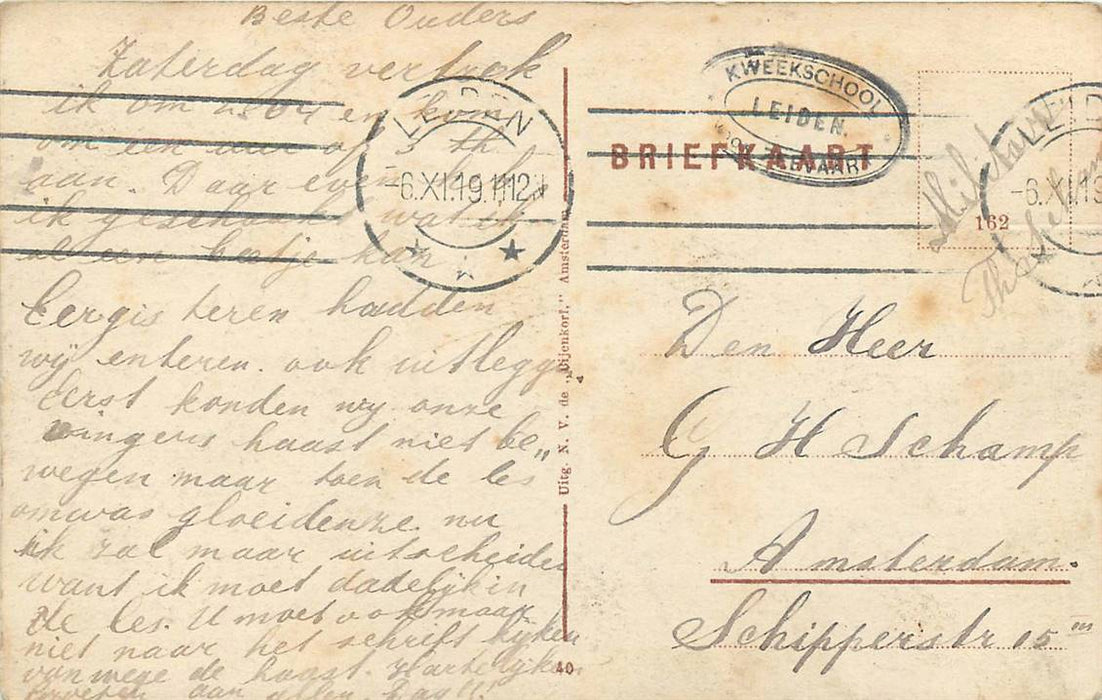 Beste Ouders
Zaterdag vertrok
ik om en kom
om een uur of 3 th
aan. Daar even
ik geschreft wat ik
al een beetje kan.
Eergisteren hadden
wij enteren. ook uitlegge
Eerst konden wy onze
vingers haast niet be„
wegen maar toen de les
om was gloeidenze nu
ik zal maar uitscheiden
want ik moet dadelijk in
de les. U moet ook maar
niet naar het schrift kijken
van wege de haast. Hartelijken
groeten aan allen
LEIDEN
-6.XI.19 11-12 N
Uitg. N. V. de „Bijenkorf," Amsterdam
40
KWEEKSCHOOL
LEIDEN.
ZEEVAART
BRIEFKAART
162
Militair
LEID
-6.XI.19
Den Heer
G H Schamp
Amsterdam.
Schipperstr 15 III